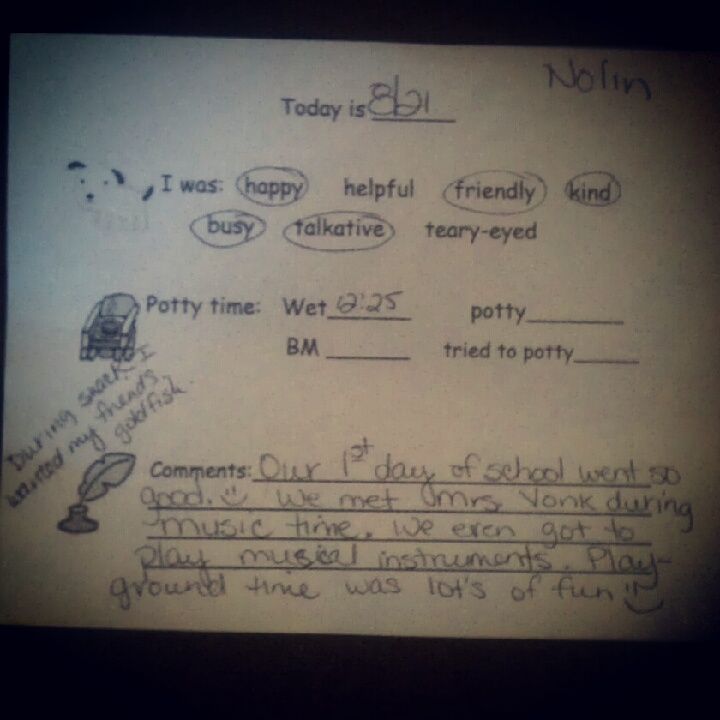 Nolin
Today is 8/21
I was: happy helpful friendly kind
busy talkative teary-eyed
Potty time: Wet 12:25 potty
BM tried to potty
During snack I
wanted my friends
goldfish.
Comments: Our 1st day of school went so
good. We met Mrs. Vonk during
music time. We even got to
play musical instruments. Play-
ground time was lot's of fun!